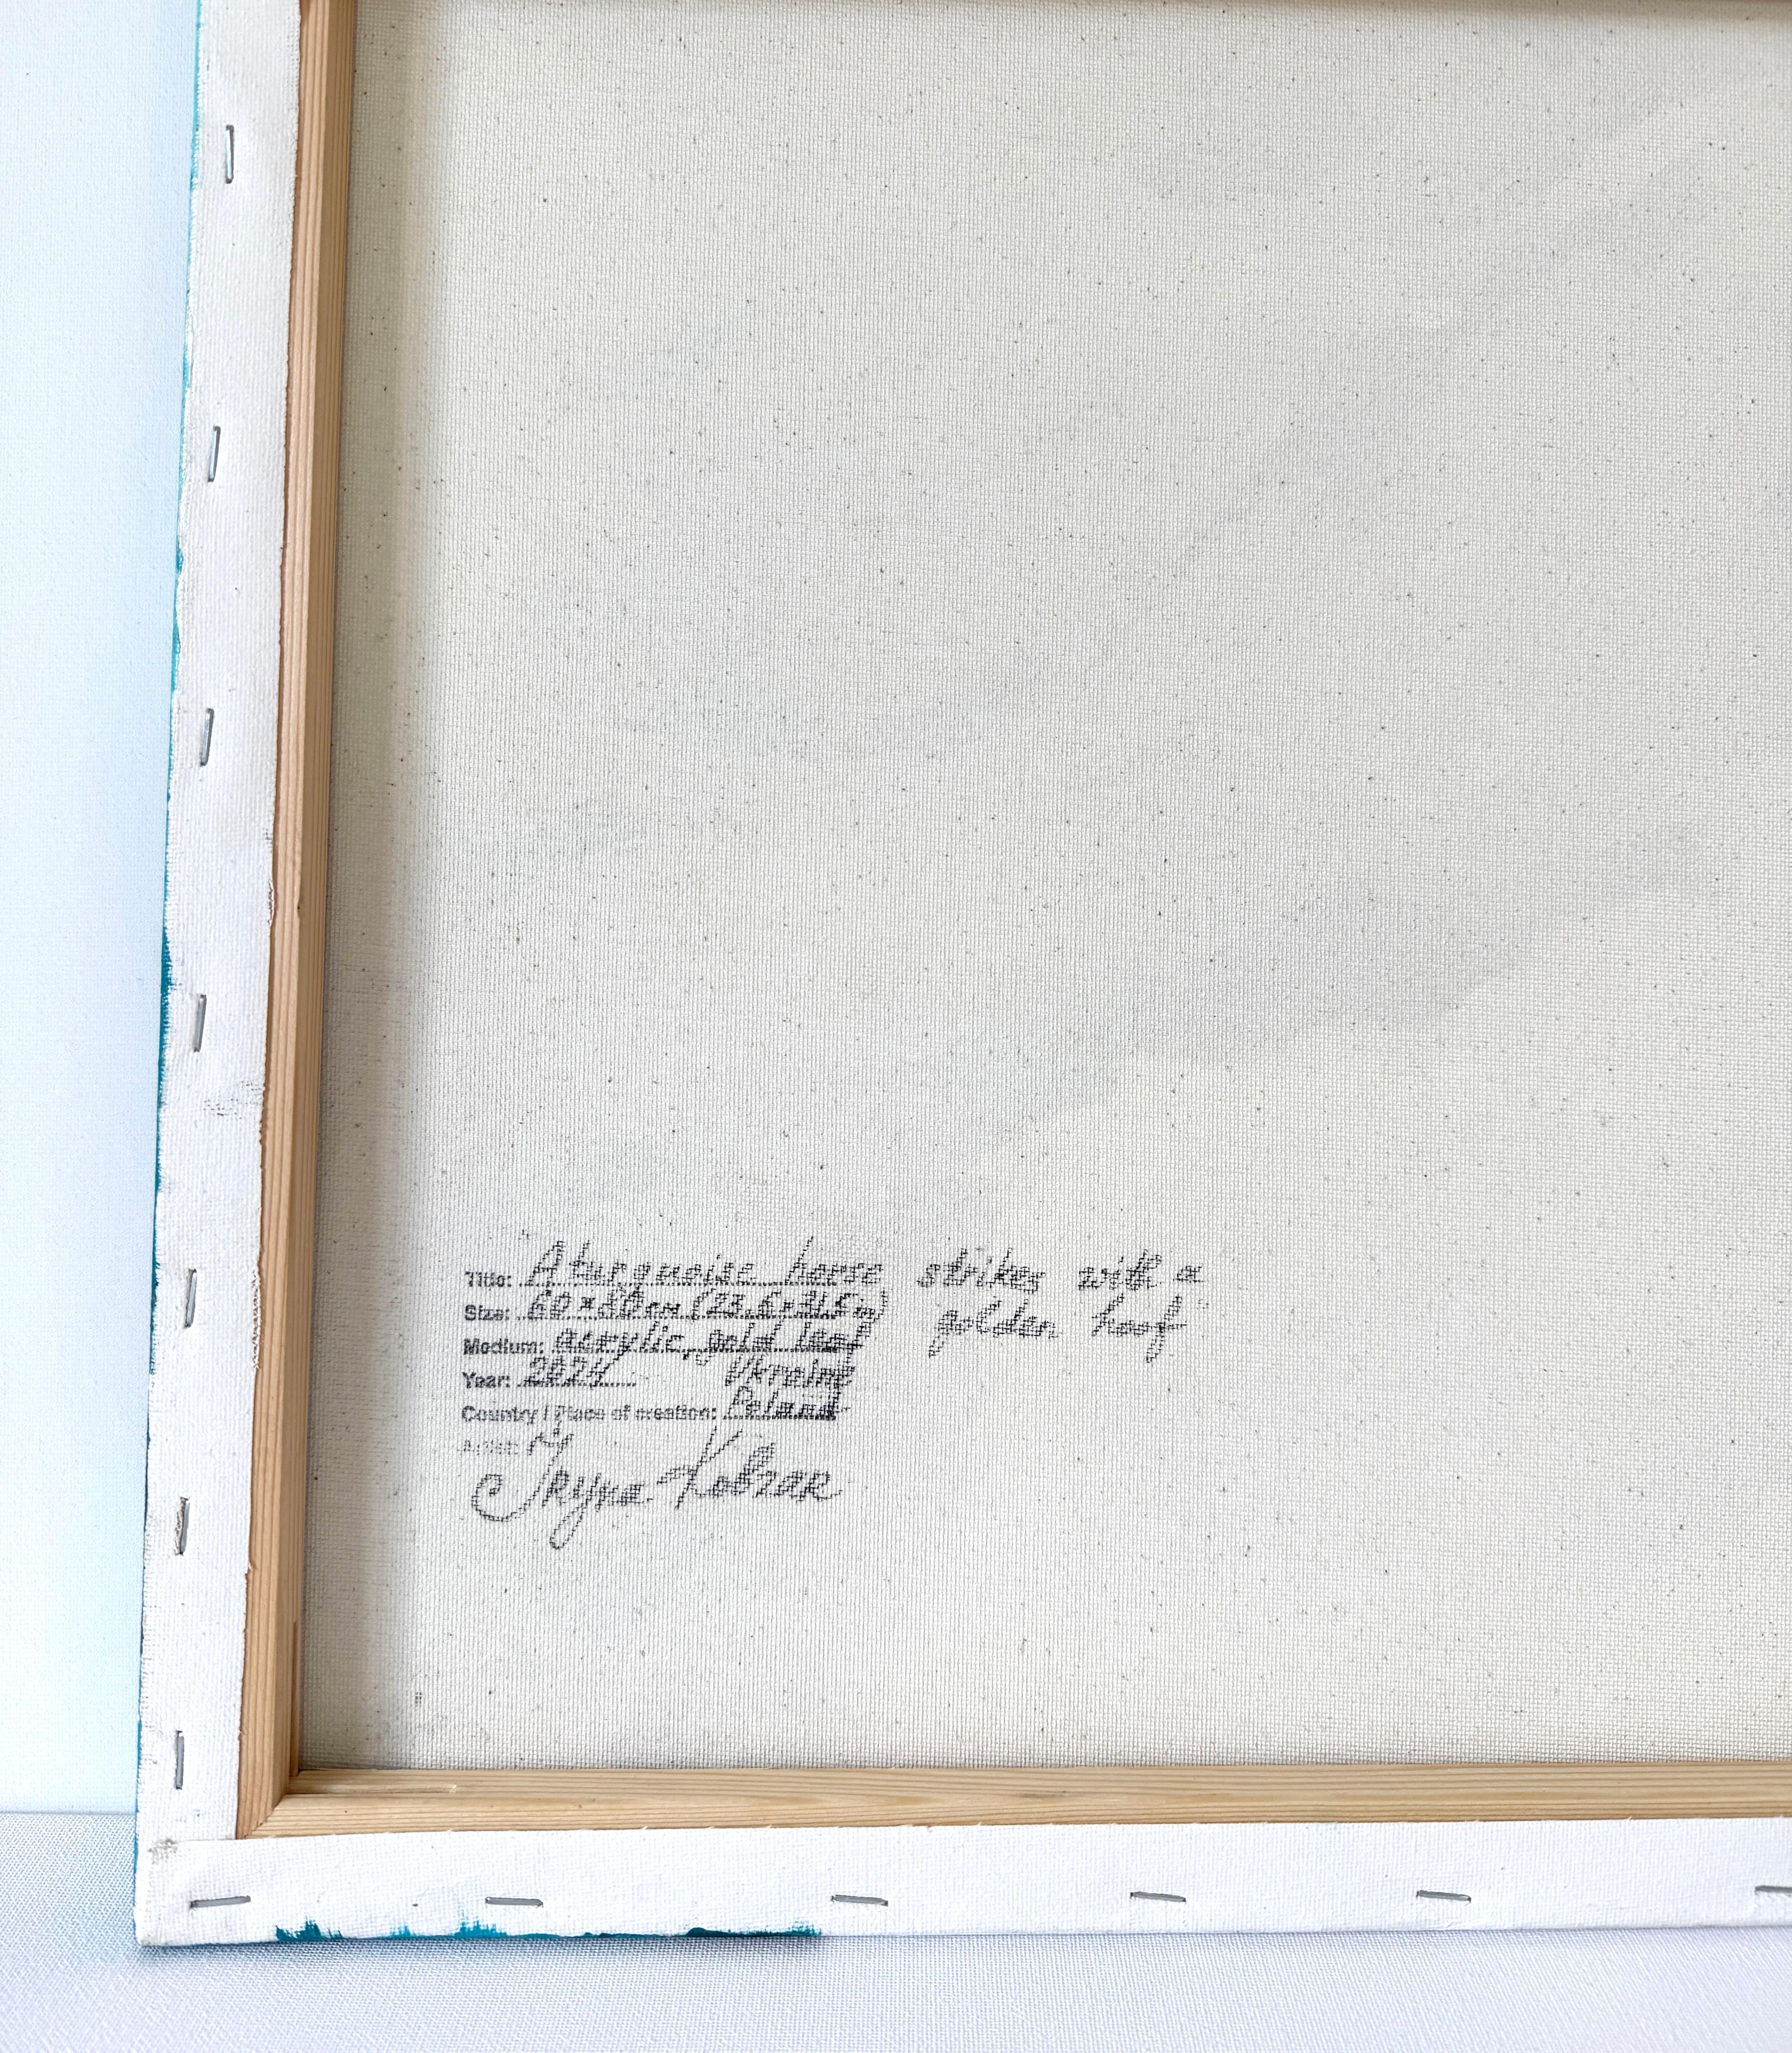 Title: A turquoise horse strikes with a
Size: 60 x 80 cm (23.6 x 31.5 in) golden hoof
Medium: acrylic, gold leaf
Year: 2024 Ukraine
Country / Place of creation: Poland
Artist:
Iryna Kobzar